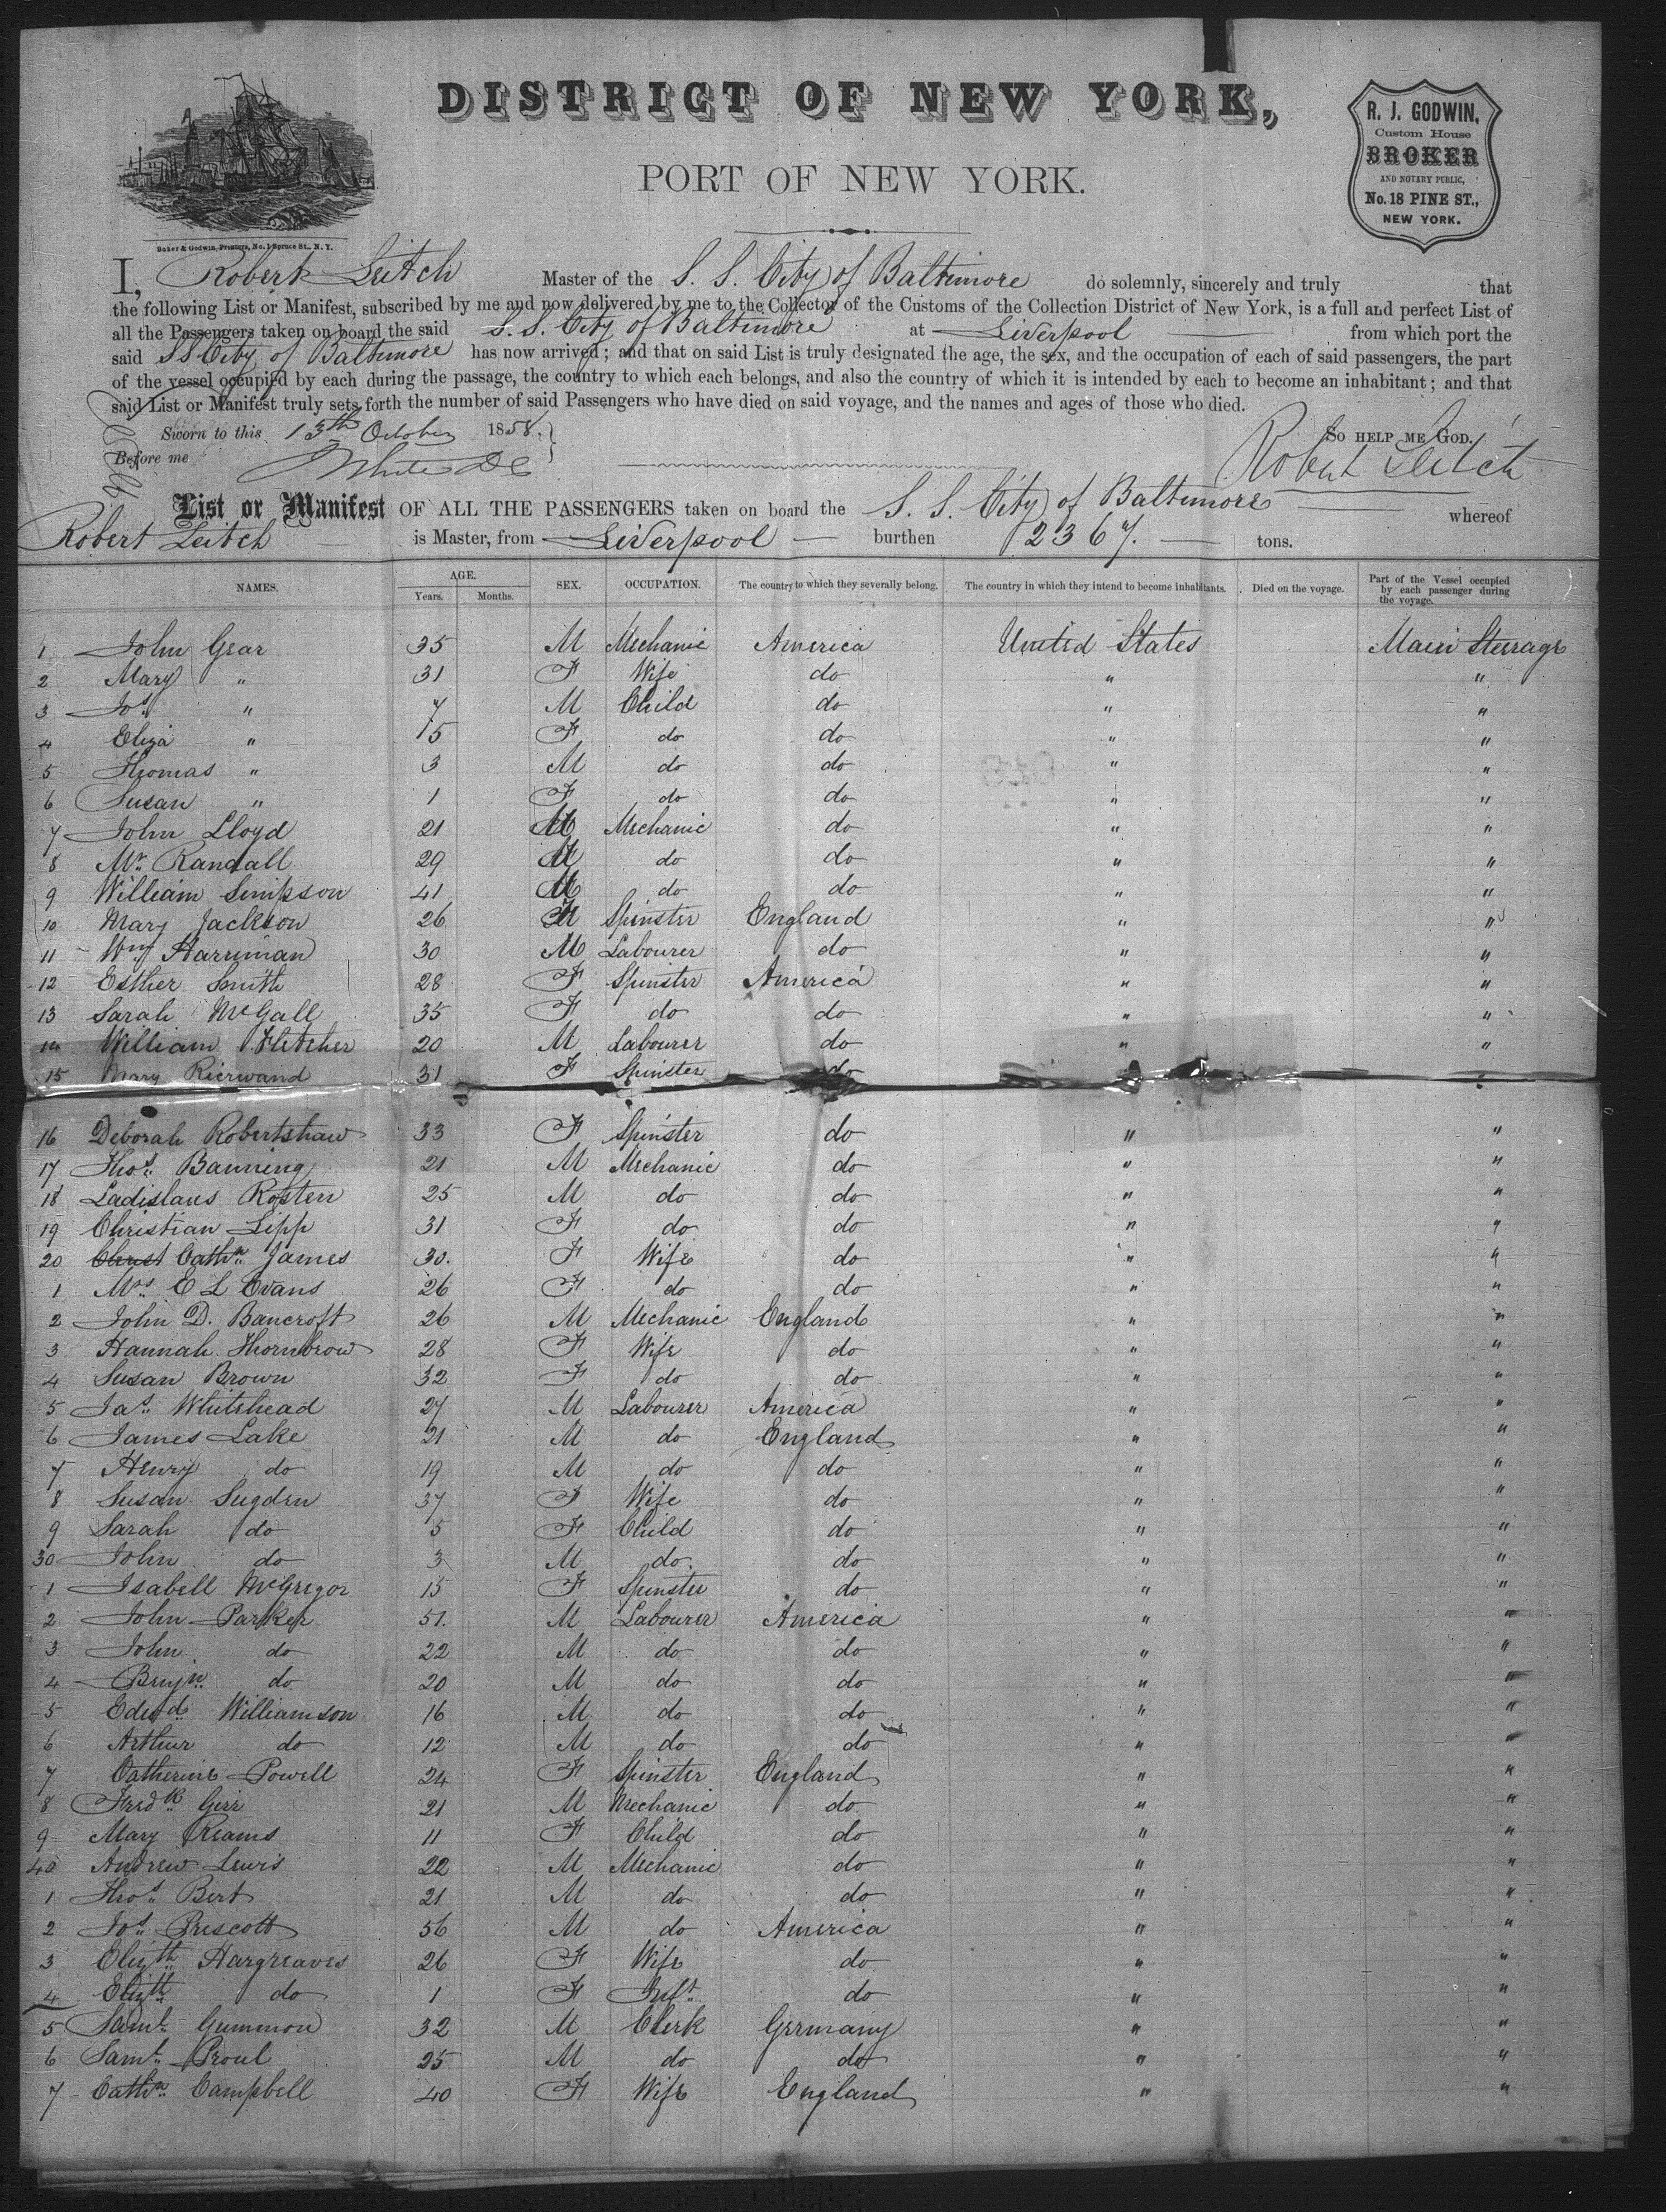 DISTRICT OF NEW YORK,
PORT OF NEW YORK.
R. J. GODWIN,
Custom House
BROKER
AND NOTARY PUBLIC,
No. 18 PINE ST.,
NEW YORK.
Baker & Godwin, Printers, No. 1 Spruce St., N. Y.
I, Robert Leitch Master of the S. S. City of Baltimore do solemnly, sincerely and truly that
the following List or Manifest, subscribed by me and now delivered by me to the Collector of the Customs of the Collection District of New York, is a full and perfect List of
all the Passengers taken on board the said S. S. City of Baltimore at Liverpool from which port the
said SS City of Baltimore has now arrived; and that on said List is truly designated the age, the sex, and the occupation of each of said passengers, the part
of the vessel occupied by each during the passage, the country to which each belongs, and also the country of which it is intended by each to become an inhabitant; and that
said List or Manifest truly sets forth the number of said Passengers who have died on said voyage, and the names and ages of those who died.
Sworn to this 13th October 1858. So help me God.
Before me White DC Robert Leitch
List or Manifest OF ALL THE PASSENGERS taken on board the S. S. City of Baltimore whereof
Robert Leitch is Master, from Liverpool burthen 2367. tons.
NAMES. AGE. Years. Months. SEX. OCCUPATION. The country to which they severally belong. The country in which they intend to become inhabitants. Died on the voyage. Part of the Vessel occupied by each passenger during the voyage.
1 John Gear 35 M Mechanic America United States Main Steerage
2 Mary " 31 F Wife do " "
3 Jos. " 7 M Child do " "
4 Eliza " 15 F do do " "
5 Thomas " 3 M do do " "
6 Susan " 1 F do do " "
7 John Lloyd 21 M Mechanic do " "
8 Mr. Randall 29 M do do " "
9 William Simpson 41 M do do " "
10 Mary Jackson 26 F Spinster England " "
11 Wm Harriman 30 M Labourer do " "
12 Esther Smith 28 F Spinster America " "
13 Sarah McGall 35 F do do " "
14 William Fletcher 20 M Labourer do " "
15 Mary Rierwand 31 F Spinster do "
16 Deborah Robertshaw 33 F Spinster do " "
17 Thos. Banning 21 M Mechanic do " "
18 Ladislaus Rosten 25 M do do " "
19 Christian Lipp 31 F do do " "
20 Christ Cathn. James 30. F Wife do " "
1 Mrs. E L Evans 26 F do do " "
2 John D. Bancroft 26 M Mechanic England " "
3 Hannah Thornbrow 28 F Wife do " "
4 Susan Brown 32 F do do " "
5 Jas. Whitehead 27 M Labourer America " "
6 James Lake 21 M do England " "
7 Henry do 19 M do do " "
8 Susan Sugden 37 F Wife do " "
9 Sarah do 5 F Child do " "
30 John do 3 M do. do " "
1 Isabell McGregor 15 F Spinster do " "
2 John Parker 51. M Labourer America " "
3 John do 22 M do do " "
4 Benjn. do 20 M do do " "
5 Edwd. Williamson 16 M do do " "
6 Arthur do 12 M do do " "
7 Catherine Powell 24 F Spinster England " "
8 Fredk. Girr 21 M Mechanic do " "
9 Mary Reams 11 F Child do " "
40 Andrew Lewis 22 M Mechanic do " "
1 Thos. Bert 21 M do do " "
2 Jos. Prescott 56 M do America " "
3 Elizth. Hargreaves 26 F Wife do " "
4 Elizth. do 1 F Inft. do " "
5 Saml. Gummon 32 M Clerk Germany " "
6 Saml. Proul 25 M do do " "
7 Cathn. Campbell 40 F Wife England " "